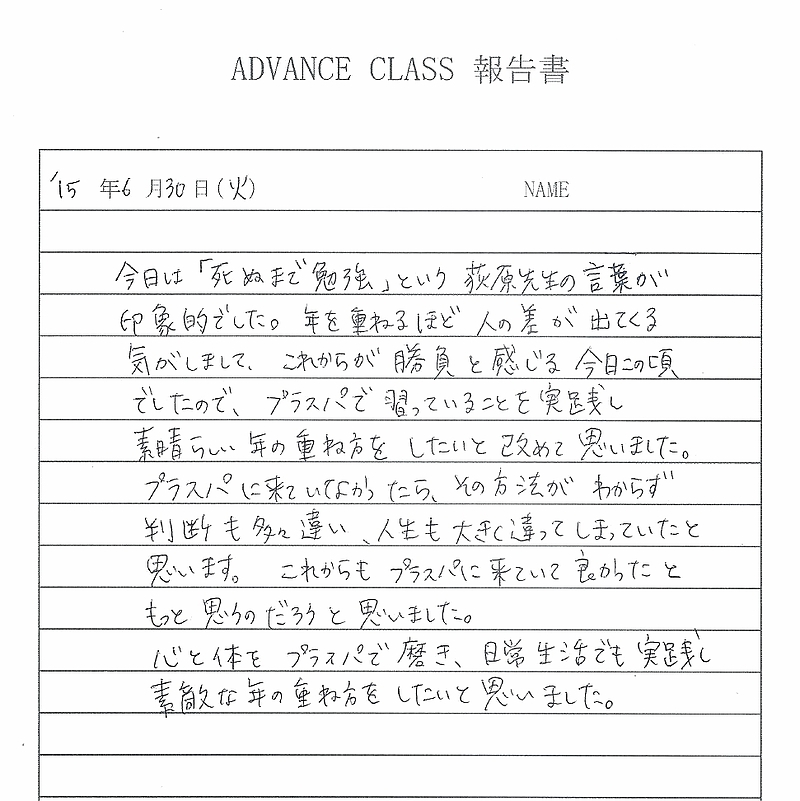 ADVANCE CLASS 報告書
'15 年6 月30日(火) NAME
今日は「死ぬまで勉強」という 荻原先生の言葉が
印象的でした。 年を重ねるほど 人の差が 出てくる
気がしまして、 これからが 勝負と感じる 今日この頃
でしたので、 プラスパで習っていることを実践し
素晴らしい年の重ね方を したいと改めて思いました。
プラスパに来ていなかったら、その方法が わからず
判断も多々違い、人生も大きく違ってしまっていたと
思います。 これからも プラスパに来ていて良かったと
もっと 思うのだろうと思いました。
心と体を プラスパで磨き、日常生活でも実践し
素敵な年の重ね方を したいと思いました。